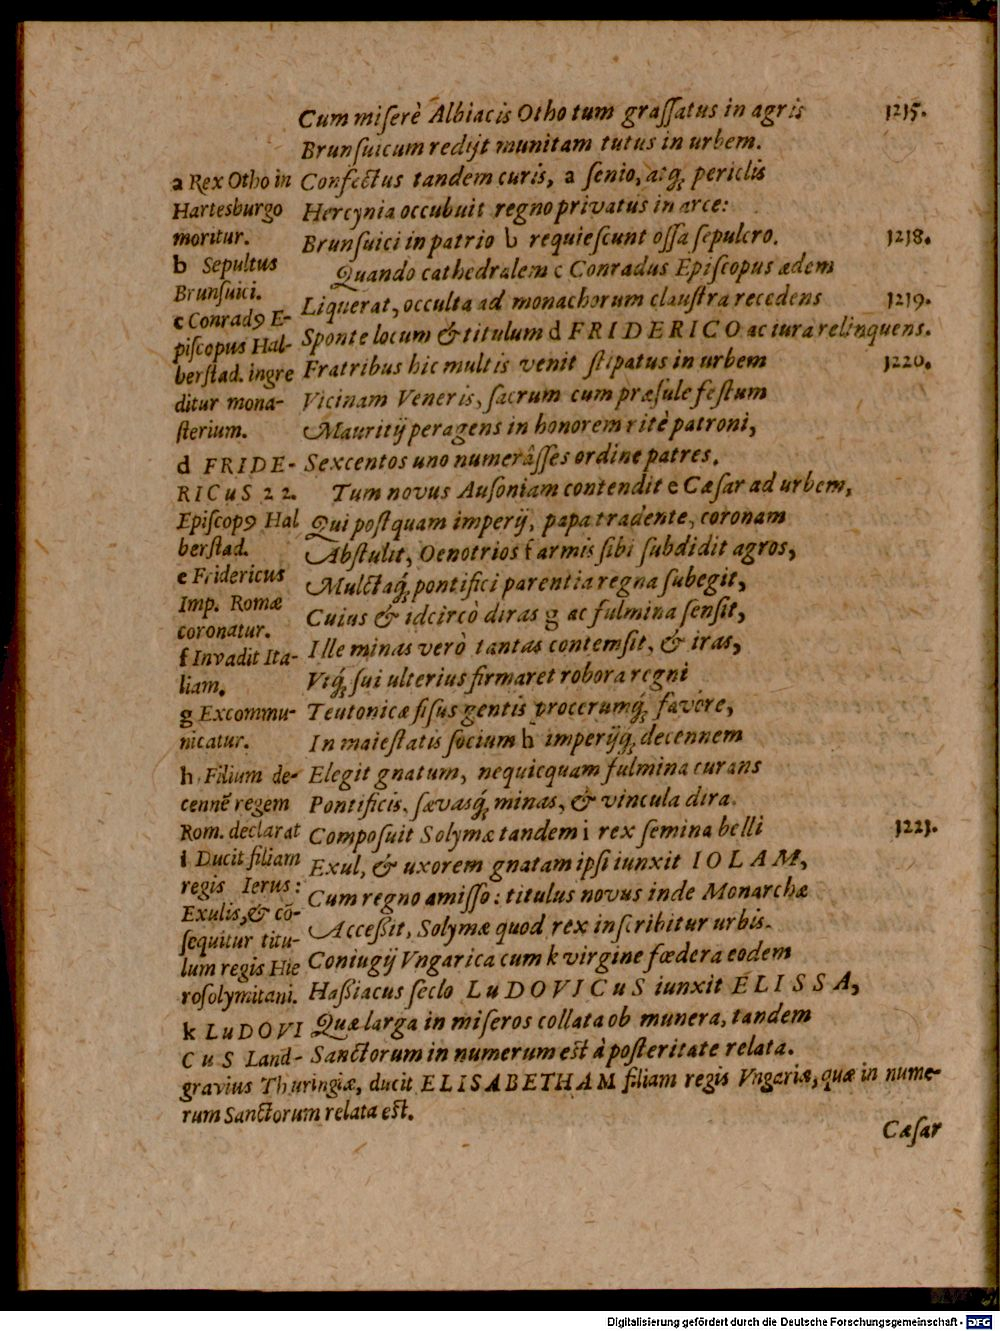 Cum miſerè Albiacis Otho tum graſſatus in agris 1215.
Brunſuicum redijt munitam tutus in urbem.
Confectus tandem curis, a ſenio, atq́; periclis
Hercynia occubuit regno privatus in arce:
Brunſuici in patrio b requieſcunt oſſa ſepulcro. 1218.
Quando cathedralem c Conradus Epiſcopus ædem
Liquerat, occulta ad monachorum clauſtra recedens 1219.
Sponte locum & titulum d FRIDERICO ac iura relinquens.
Fratribus hic multis venit ſtipatus in urbem 1220.
Vicinam Veneris, ſacrum cum præſule feſtum
Mauritij peragens in honorem ritè patroni,
Sexcentos uno numerâſſes ordine patres.
Tum novus Auſoniam contendit e Cæſar ad urbem,
Qui poſtquam imperij, papa tradente, coronam
Abſtulit, Oenotrios f armis ſibi ſubdidit agros,
Mulctaq́; pontifici parentia regna ſubegit,
Cuius & idcircò diras g ac fulmina ſenſit,
Ille minas verò tantas contemſit, & iras,
Vtq́; ſui ulterius firmaret robora regni
Teutonicæ fiſus gentis procerumq́; favore,
In maieſtatis ſocium h imperijq́; decennem
Elegit gnatum, nequicquam fulmina curans
Pontificis, ſævasq́; minas, & vincula dira.
Compoſuit Solymæ tandem i rex ſemina belli 1221.
Exul, & uxorem gnatam ipſi iunxit IOLAM,
Cum regno amiſſo: titulus novus inde Monarchæ
Acceßit, Solymæ quod rex inſcribitur urbis.
Coniugij Vngarica cum k virgine fœdera eodem
Haßiacus ſeclo LuDOVICuS iunxit ELISSA,
Quæ larga in miſeros collata ob munera, tandem
Sanctorum in numerum eſt à poſteritate relata.
a Rex Otho in
Hartesburgo
moritur.
b Sepultus
Brunſuici.
c Conradꝰ E-
piſcopus Hal-
berſtad. ingre
ditur mona-
ſterium.
d FRIDE-
RICuS 22.
Epiſcopꝰ Hal
berſtad.
e Fridericus
Imp. Romæ
coronatur.
f Invadit Ita-
liam.
g Excommu-
nicatur.
h Filium de-
cennē regem
Rom. declarat
i Ducit filiam
regis Ierus:
Exulis, & cō-
ſequitur titu-
lum regis Hie
roſolymitani.
k LuDOVI
CuS Land-
gravius Thuringiæ, ducit ELISABETHAM filiam regis Vngariæ, quæ in nume-
rum Sanctorum relata eſt.
Cæſar
Digitalisierung gefördert durch die Deutsche Forschungsgemeinschaft - DFG